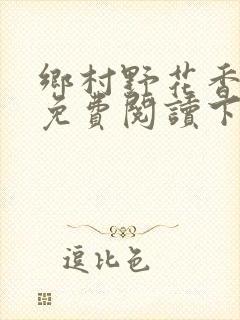 鄉村野花香
免費閱讀下
逗比色